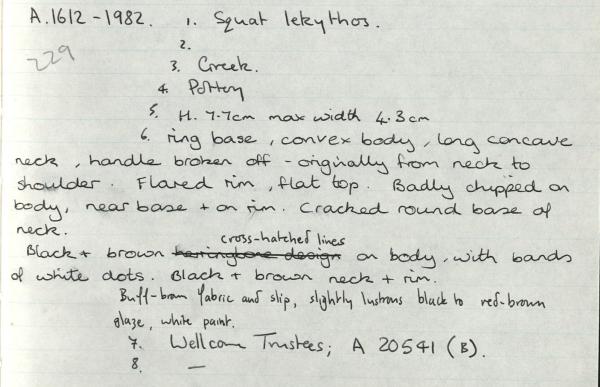 A.1612-1982. 1. Squat lekythos.
229
2.
3. Greek.
4. Pottery
5. H. 7.7cm max width 4.3cm
6. ring base, convex body, long concave
neck, handle broken off - originally from neck to
shoulder. Flared rim, flat top. Badly chipped on
body, near base + on rim. Cracked round base of
neck.
cross-hatched lines
Black + brown herringbone design on body, with bands
of white dots. Black + brown neck + rim.
Buff-brown fabric and slip, slightly lustrous black to red-brown
glaze, white paint.
7. Wellcome Trustees; A 20541 (B).
8. —